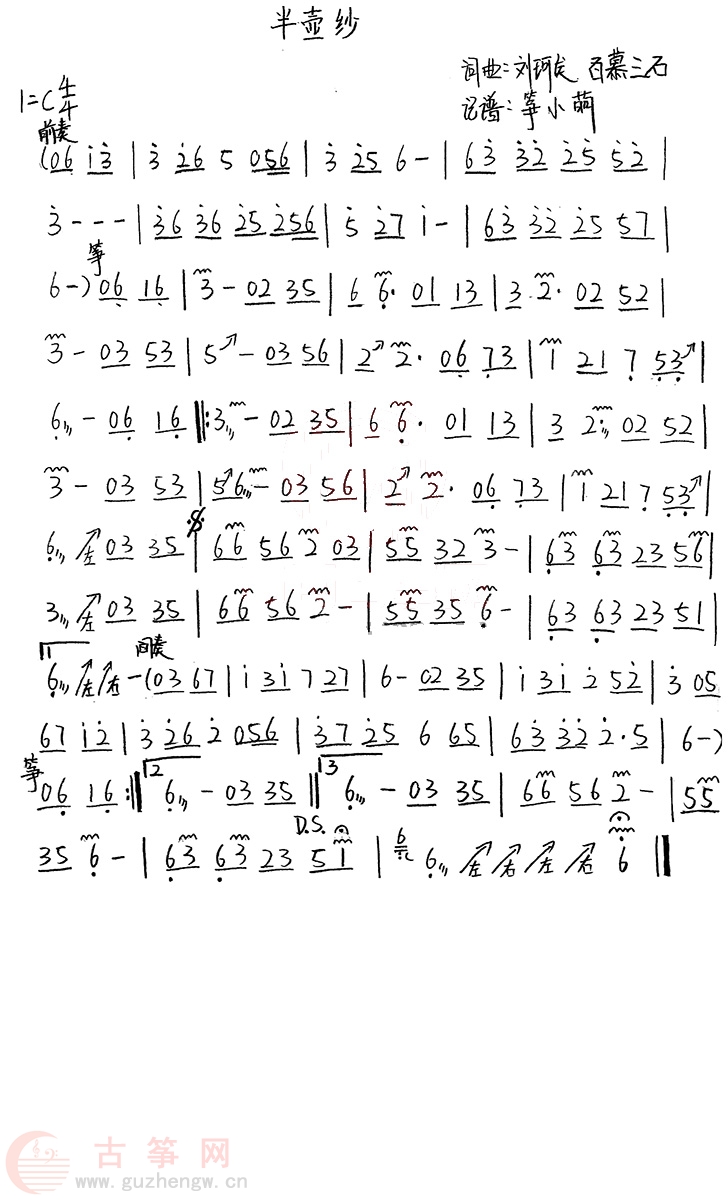 半壶纱
词曲:刘珂矣 百慕三石
1=C 4/4
记谱:筝小萌
前奏
(06 i3 | 3 26 5 056 | 3 25 6 - | 63 32 25 52 |
3 - - - | 36 36 25 256 | 5 27 i - | 63 32 25 57 |
筝
6 -) 06 16 | 3 - 02 35 | 6 6· 01 13 | 3 2· 02 52 |
3 - 03 53 | 5↗ - 03 56 | 2↗ 2· 06 73 | 1 21 7 53↗ |
6 - 06 16 ‖: 3 - 02 35 | 6 6· 01 13 | 3 2· 02 52 |
3 - 03 53 | 5↗6 - 03 56 | 2↗ 2· 06 73 | 1 21 7 53↗ |
6 ↗左 03 35 | 66 56 2 03 | 55 32 3 - | 63 63 23 56 |
3 ↗左 03 35 | 66 56 2 - | 55 35 6 - | 63 63 23 51 |
1 间奏
6 ↗左 ↗右 - (03 67 | i 3i 7 27 | 6 - 02 35 | i 3i 2 52 | 3 05
67 i2 | 3 26 2 056 | 37 25 6 65 | 63 32 2·5 | 6 -)
筝 2 3
06 16 :‖ 6 - 03 35 ‖ 6 - 03 35 | 66 56 2 - | 55
D.S.
35 6 - | 63 63 23 51 | 6 6 ↗左 ↗右 ↗左 ↗右 6 ‖
古筝网
www.guzhengw.cn